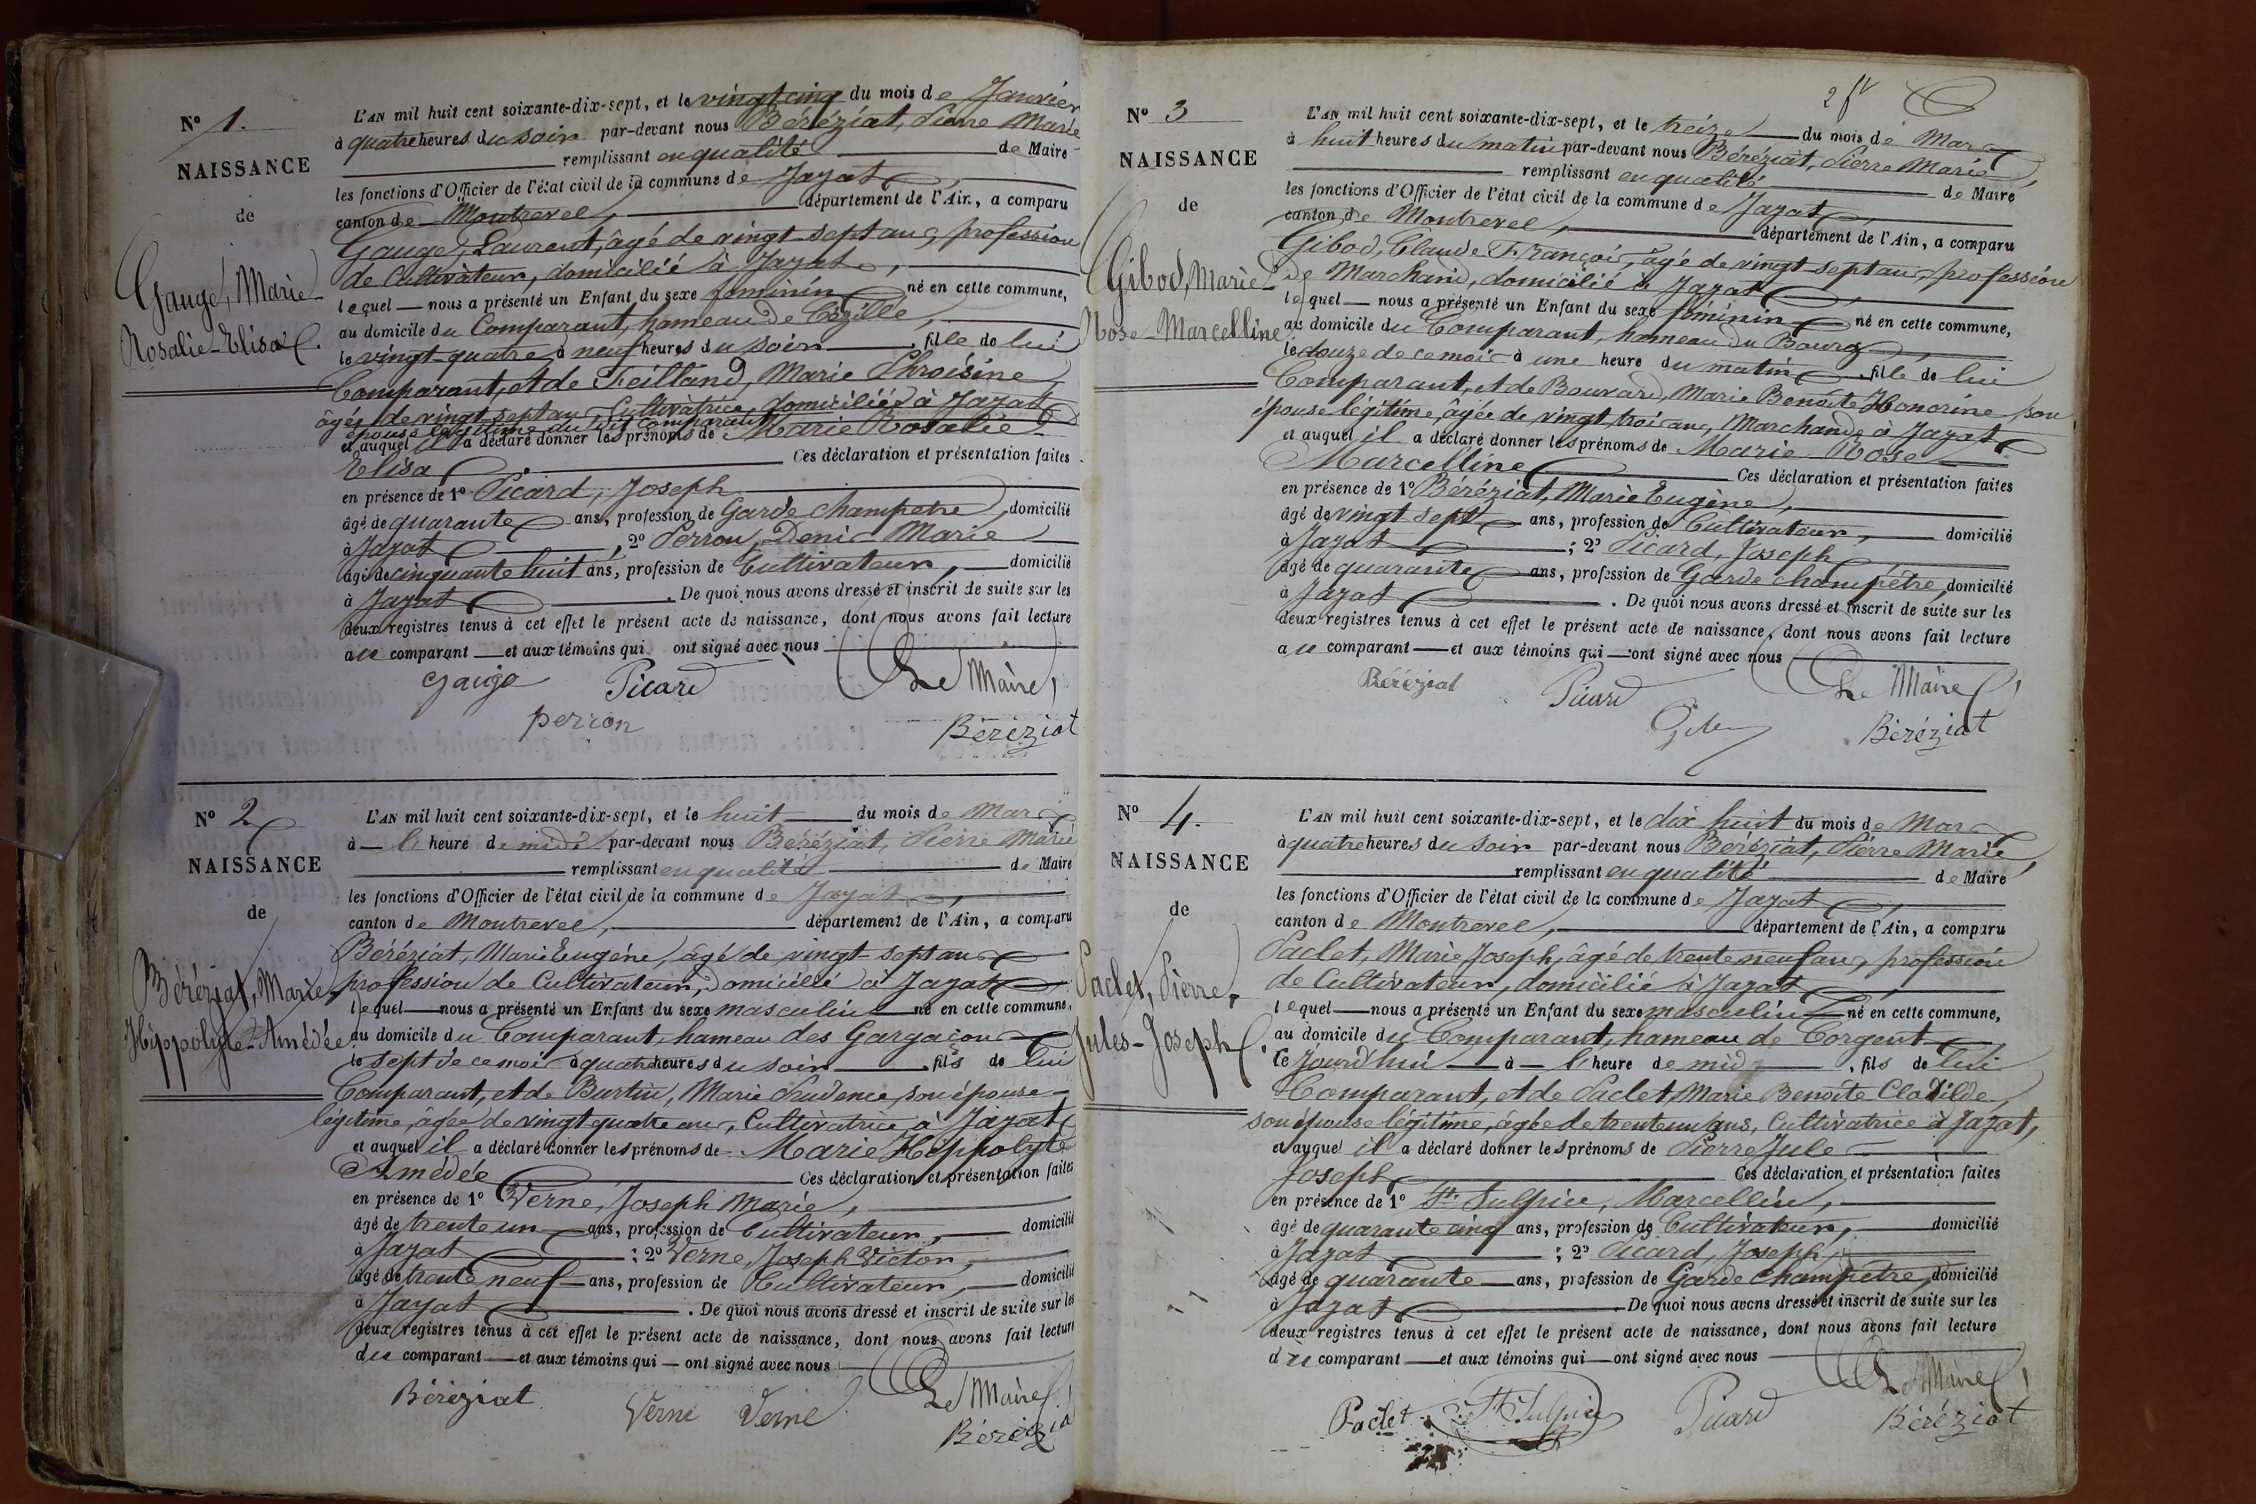 N° 1.
NAISSANCE
de
Gauge, Marie-
Rosalie-Elisa.
L'AN mil huit cent soixante-dix-sept, et le vingt cinq du mois de Janvier
à quatre heures du soir par-devant nous Béréziat, Pierre Marie
remplissant en qualité de Maire
les fonctions d'Officier de l'état civil de la commune de Jayat
canton de Montrevel, département de l'Ain, a comparu
Gauge, Laurent, âgé de vingt-sept ans, profession
de Cultivateur, domicilié à Jayat,
lequel nous a présenté un Enfant du sexe féminin né en cette commune,
au domicile du Comparant, hameau de Cézille,
le vingt-quatre à neuf heures du soir, fille de lui
Comparant, et de Feilland, Marie Phroisine
âgée de vingt-sept ans, Cultivatrice, domiciliée à Jayat
épouse légitime du dit comparant
et auquel il a déclaré donner les prénoms de Marie Rosalie
Elisa Ces déclaration et présentation faites
en présence de 1° Picard, Joseph
âgé de quarante ans, profession de Garde champetre, domicilié
à Jayat ; 2° Perron, Denis Marie
âgé de cinquante huit ans, profession de Cultivateur, domicilié
à Jayat. De quoi nous avons dressé et inscrit de suite sur les
deux registres tenus à cet effet le présent acte de naissance, dont nous avons fait lecture
au comparant et aux témoins qui ont signé avec nous
gauge Picard Le Maire,
perron Béréziat
N° 2
NAISSANCE
de
Béréziat, Marie,
Hippolyte-Amédée
L'AN mil huit cent soixante-dix-sept, et le huit du mois de Mars
à l' heure de midi par-devant nous Béréziat, Pierre Marie
remplissant en qualité de Maire
les fonctions d'Officier de l'état civil de la commune de Jayat,
canton de Montrevel, département de l'Ain, a comparu
Béréziat, Marie Eugène, âgé de vingt-sept ans
profession de Cultivateur, domicilié à Jayat
lequel nous a présenté un Enfant du sexe masculin né en cette commune,
au domicile du Comparant, hameau des Gargaçon
le sept de ce mois à quatre heures du soir, fils de lui
Comparant, et de Burtin, Marie Prudence, son épouse
légitime, âgée de vingt quatre ans, Cultivatrice à Jayat
et auquel il a déclaré donner les prénoms de Marie Hippolyte
Amédée Ces déclaration et présentation faites
en présence de 1° Verne, Joseph Marie,
âgé de trente un ans, profession de Cultivateur, domicilié
à Jayat ; 2° Verne, Joseph Victor,
âgé de trente neuf ans, profession de Cultivateur, domicilié
à Jayat. De quoi nous avons dressé et inscrit de suite sur les
deux registres tenus à cet effet le présent acte de naissance, dont nous avons fait lecture
du comparant et aux témoins qui ont signé avec nous
Béréziat Verne Verne Le Maire,
Béréziat
2
N° 3
NAISSANCE
de
Gibod, Marie-
Rose-Marcelline
L'AN mil huit cent soixante-dix-sept, et le treize du mois de Mars
à huit heures du matin par-devant nous Béréziat, Pierre Marie,
remplissant en qualité de Maire
les fonctions d'Officier de l'état civil de la commune de Jayat
canton de Montrevel, département de l'Ain, a comparu
Gibod, Claude François, âgé de vingt-sept ans, profession
de Marchand, domicilié à Jayat
lequel nous a présenté un Enfant du sexe féminin né en cette commune,
au domicile du Comparant, hameau du Bourg,
le douze de ce mois à une heure du matin, fille de lui
Comparant, et de Bouvard, Marie Benoîte Honorine son
épouse légitime, âgée de vingt-trois ans, Marchande à Jayat
et auquel il a déclaré donner les prénoms de Marie-Rose
Marcelline Ces déclaration et présentation faites
en présence de 1° Béréziat, Marie Eugène,
âgé de vingt sept ans, profession de Cultivateur, domicilié
à Jayat ; 2° Picard, Joseph
âgé de quarante ans, profession de Garde champêtre, domicilié
à Jayat. De quoi nous avons dressé et inscrit de suite sur les
deux registres tenus à cet effet le présent acte de naissance, dont nous avons fait lecture
au comparant et aux témoins qui ont signé avec nous
Béréziat Picard Le Maire,
Béréziat
N° 4.
NAISSANCE
de
Paclet, Pierre,
Jules-Joseph
L'AN mil huit cent soixante-dix-sept, et le dix huit du mois de Mars
à quatre heures du soir par-devant nous Béréziat, Pierre Marie,
remplissant en qualité de Maire
les fonctions d'Officier de l'état civil de la commune de Jayat
canton de Montrevel, département de l'Ain, a comparu
Paclet, Marie Joseph, âgé de trente neuf ans, profession
de Cultivateur, domicilié à Jayat
lequel nous a présenté un Enfant du sexe masculin né en cette commune,
au domicile du Comparant, hameau de Corgent
Ce jourd'hui à l' heure de midi, fils de lui
Comparant, et de Paclet, Marie Benoîte Clotilde
son épouse légitime, âgée de trente un ans, Cultivatrice à Jayat,
et auquel il a déclaré donner les prénoms de Pierre Jule
Joseph Ces déclaration et présentation faites
en présence de 1° St Sulpice, Marcellin,
âgé de quarante cinq ans, profession de Cultivateur, domicilié
à Jayat ; 2° Picard, Joseph,
âgé de quarante ans, profession de Garde champêtre, domicilié
à Jayat. De quoi nous avons dressé et inscrit de suite sur les
deux registres tenus à cet effet le présent acte de naissance, dont nous avons fait lecture
du comparant et aux témoins qui ont signé avec nous
Paclet St Sulpice Picard Le Maire,
Béréziat